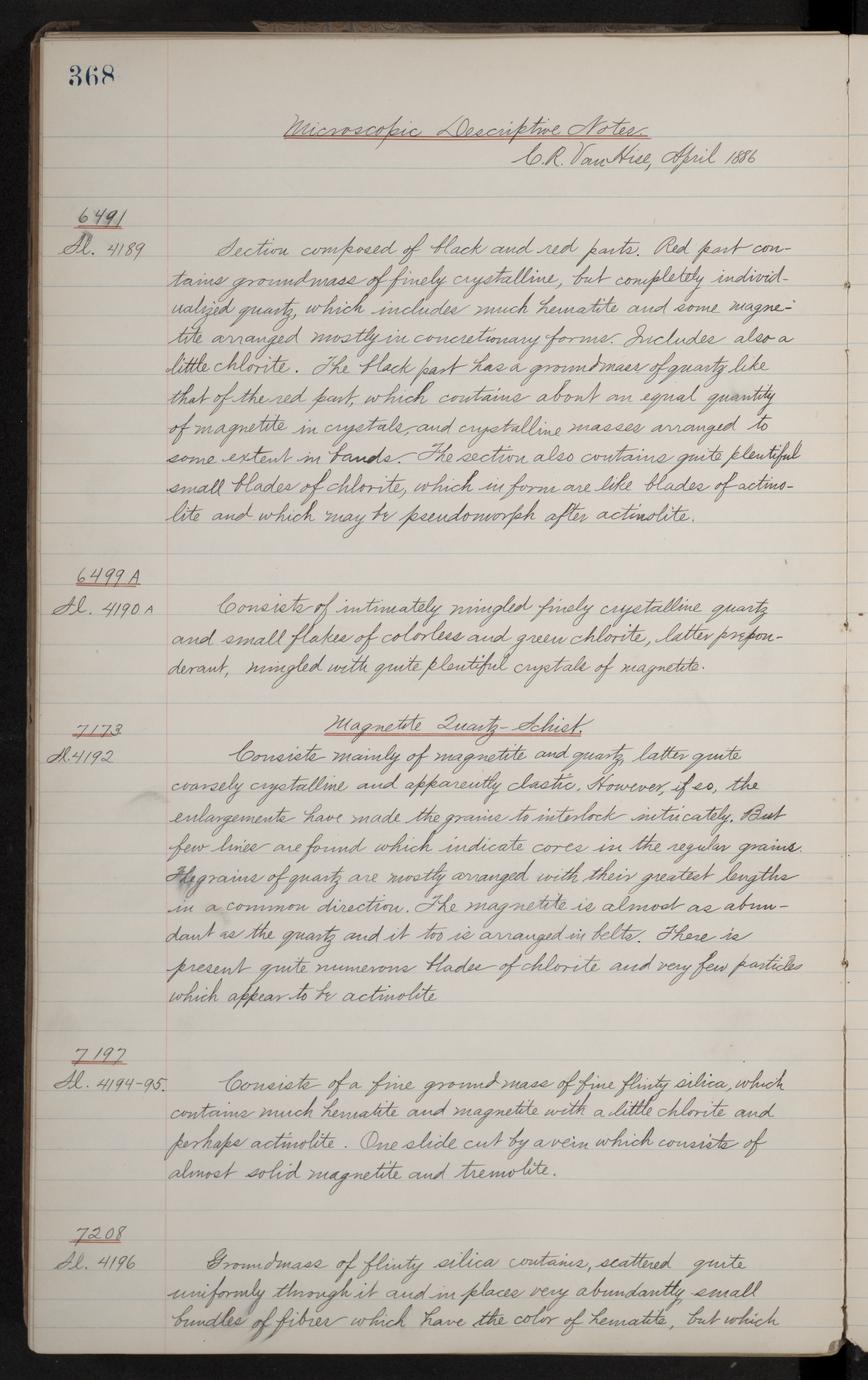 368
Microscopic Descriptive Notes.
C.R. Van Hise, April 1886
6491
Sl. 4189
Section composed of black and red parts. Red part con-
tains groundmass of finely crystalline, but completely individ-
ualized quartz, which includes much hematite and some magne-
tite arranged mostly in concretionary forms. Includes also a
little chlorite. The black part has a groundmass of quartz like
that of the red part, which contains about an equal quantity
of magnetite in crystals, and crystalline masses arranged to
some extent in bands. The section also contains quite plentiful
small blades of chlorite, which in form are like blades of actino-
lite and which may be pseudomorph after actinolite.
6499 A
Sl. 4190 A
Consists of intimately mingled finely crystalline quartz
and small flakes of colorless and green chlorite, latter prepon-
derant, mingled with quite plentiful crystals of magnetite.
7173
Sl. 4192
Magnetite Quartz-Schist.
Consists mainly of magnetite and quartz, latter quite
coarsely crystalline and apparently clastic. However, if so, the
enlargements have made the grains to interlock intricately. But
few lines are found which indicate cores in the regular grains.
The grains of quartz are mostly arranged with their greatest lengths
in a common direction. The magnetite is almost as abun-
dant as the quartz and it too is arranged in belts. There is
present quite numerous blades of chlorite and very few particles
which appear to be actinolite
7197
Sl. 4194-95.
Consists of a fine groundmass of fine flinty silica, which
contains much hematite and magnetite with a little chlorite and
perhaps actinolite. One slide cut by a vein which consists of
almost solid magnetite and tremolite.
7208
Sl. 4196
Groundmass of flinty silica contains, scattered quite
uniformly through it and in places very abundantly, small
bundles of fibres which have the color of hematite, but which